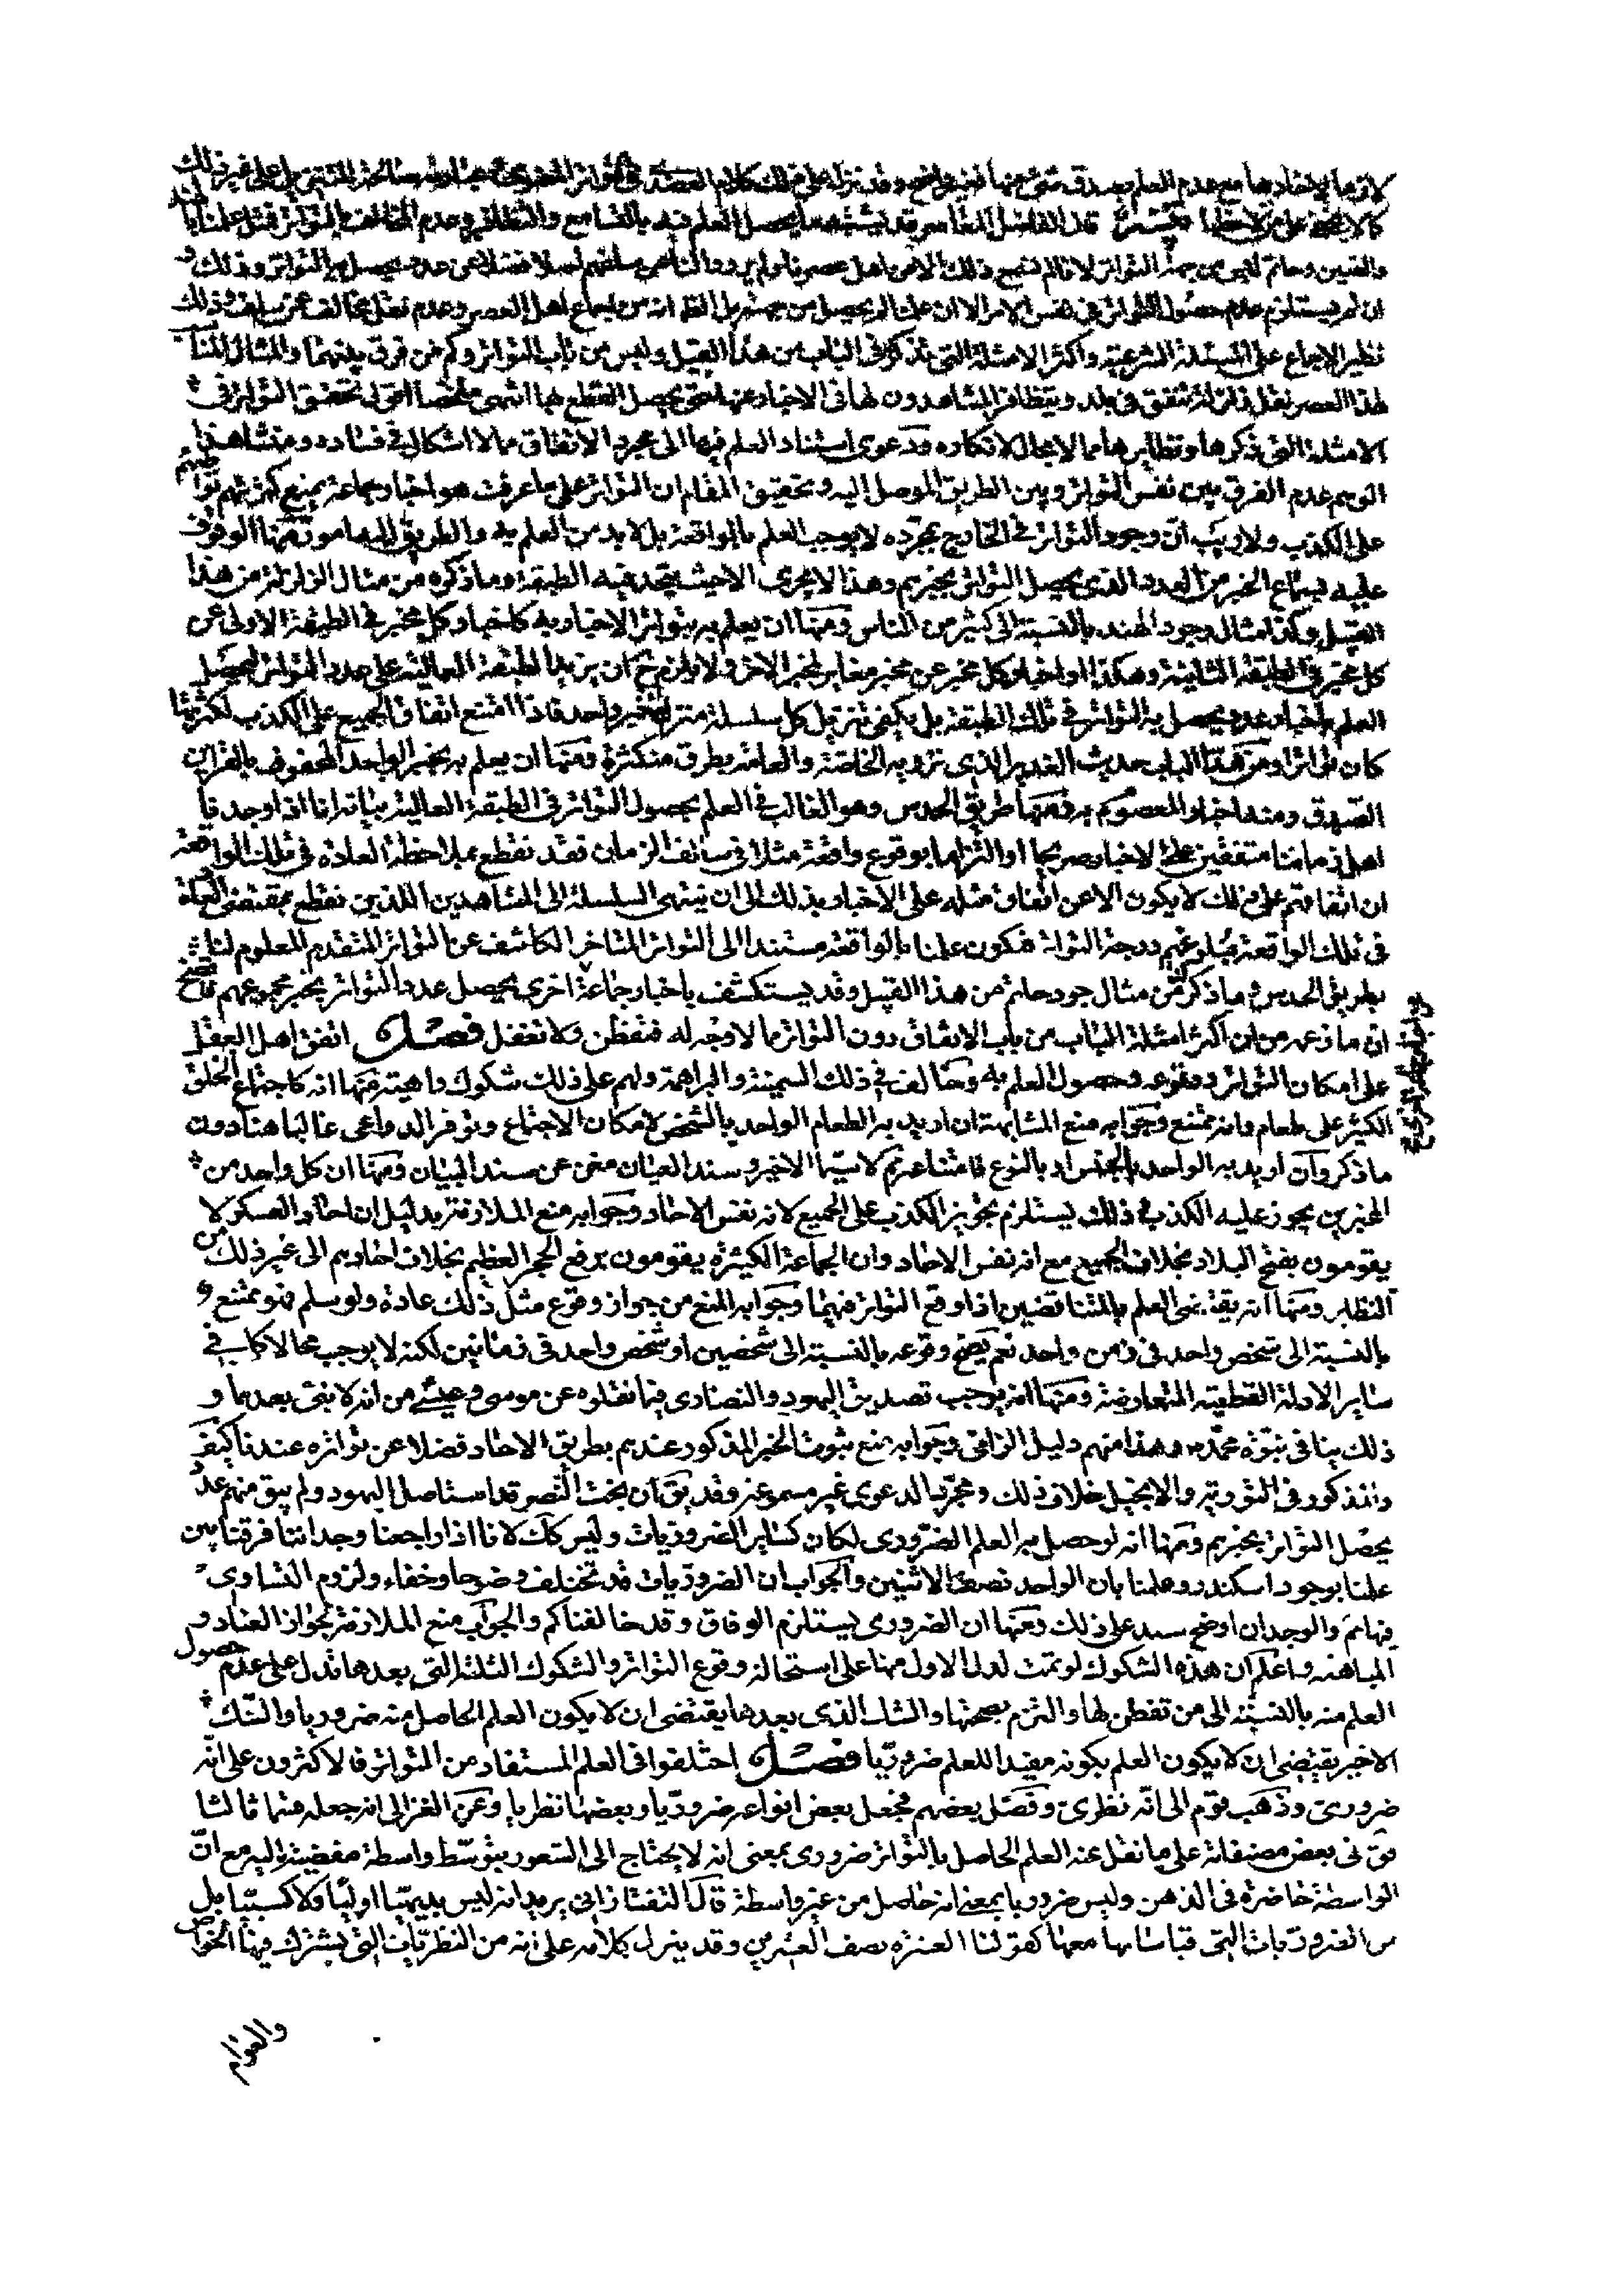 كما لا يخفى على من لاحظها قال الفاضل المعاصر قد يشتبه ما يحصل العلم فيه بالتسامع والتظافر وعدم المخالف بالتواتر فمثل علمنا
والصين وحاتم ليس من جهة التواتر لانا لم نسمع ذلك الا من اهل عصرنا ولم يرووا لنا عن سلفهم اصلا فضلا عن عدد يحصل به التواتر وذلك و
ان لم يستلزم عدم حصول التواتر في نفس الامر الا ان علمنا لم يحصل من جهته بل الظ انه من اجماع اهل العصر وعدم نقل مخالف عمن سلف وذلك
نظير الاجماع على المسئلة الشرعية واكثر الامثلة التي تذكر في الباب من هذا القبيل وليس من باب التواتر وكم من فرق بينهما والمثال المناسب
لهذا العصر نقل زلزلة تتفق في بلد ويتظافر المشاهدون لها في الاخبار عنها حتى يحصل القطع بها انتهى ملخصا اقول تحقق التواتر في
الامثلة التي ذكرها ونظايرها مما لا مجال لانكاره ودعوى استناد العلم فيها الى مجرد الاتفاق مما لا اشكال في فساده ومنشأ هذا
الوهم عدم الفرق بين نفس التواتر وبين الطريق الموصل اليه وتحقيق المقام ان التواتر على ما عرفت هو اخبار جماعة يمنع كثرتهم تواطئهم
على الكذب ولا ريب ان وجود التواتر في الخارج بمجرده لا يوجب العلم بالواقعة بل لا بد من العلم به والطريق اليه امور منها الوقوف
عليه بسماع الخبر من العدد الذي يحصل التواتر بخبرهم وهذا لا يجري الا حيث يتحد فيه الطبقة وما ذكره من مثال الزلزلة من هذا
القبيل وكذا مثال وجود الهند بالنسبة الى كثير من الناس ومنها ان يعلم به بتواتر الاخبار به كاخبار كل مخبر في الطبقة الاولى عن
كل مخبر في الطبقة الثانية وهكذا او اخبار كل مخبر عن مخبر مغاير لمخبر الاخر ولا يلزم ح ان يزيد الطبقة العالية على عدد التواتر ليحصل
العلم باخبار عدد يحصل به التواتر في تلك الطبقة بل يكفي تنزيل كل سلسلة منزلة مخبر واحد فاذا امتنع اتفاق الجميع على الكذب لكثرتها
كان تواترا ومن هذا الباب حديث الغدير الذي ترويه الخاصة والعامة بطرق متكثرة ومنها ان يعلم به بخبر الواحد المحفوف بالقراين
الصدق ومنه اخبار المعصوم به ومنها طريق الحدس وهو الغالب في العلم بحصول التواتر في الطبقة العالية بيانه انا اذا وجدنا
اهل زماننا متفقين على الاخبار صريحا او التزاما بوقوع واقعة مثلا في سالف الزمان فقد نقطع بملاحظة العادة في تلك الواقعة
ان اتفاقهم على ذلك لا يكون الا عن اتفاق مثله على الاخبار بذلك الى ان ينتهي السلسلة الى المشاهدين اللذين نقطع بمقتضى العادة
في تلك الواقعة ببلوغهم درجة التواتر فيكون علمنا بالواقعة مستندا الى التواتر المتاخر الكاشف عن التواتر المتقدم المعلوم لنا
بطريق الحدس وما ذكر من مثال جود حاتم من هذا القبيل وقد يستكشف باخبار جماعة اخرى يحصل عدد التواتر بخبر مجموعهم فاتضح
ان ما زعمه من ان اكثر امثلة الباب من باب الاتفاق دون التواتر مما لا وجه له فتفطن ولا تغفل فصل اتفق اهل العقل
على امكان التواتر ووقوعه وحصول العلم به وخالف في ذلك السمنية والبراهمة ولهم على ذلك شكوك واهية منها انه كاجتماع الخلق
الكثير على طعام وانه ممتنع وجوابه منع المشابهة ان اريد به الطعام الواحد بالشخص لامكان الاجتماع وتوفر الدواعي غالبا هنا دون
ما ذكر وان اريد به الواحد بالجنس او بالنوع فامتناعه مم لا سيما الاخير وسند العيان مغن عن سند البيان ومنها ان كل واحد من
المخبرين يجوز عليه الكذب في ذلك يستلزم تجويز الكذب على الجميع لانه نفس الاحاد وجوابه منع الملازمة بدليل ان احاد العسكر لا
يقومون بفتح البلاد بخلاف الجميع مع انه نفس الاحاد وان الجماعة الكثيرة يقومون برفع الحجر العظيم بخلاف احادهم الى غير ذلك من
النظاير ومنها انه يقتضي العلم بالمتناقضين اذا وقع التواتر فيهما وجوابه المنع من جواز وقوع مثل ذلك عادة ولو سلم فهو ممتنع و
بالنسبة الى شخص واحد في زمن واحد نعم يصح وقوعه بالنسبة الى شخصين او شخص واحد في زمانين لكنه لا يوجب محالا كما في
ساير الادلة القطعية المتعارضة ومنها انه يوجب تصديق اليهود والنصارى فيما نقلوه عن موسى وعيسى من انه لا نبي بعدهما و
ذلك ينافي نبوة محمد ص وهذا منهم دليل الزامي وجوابه منع ثبوت الخبر المذكور عندهم بطريق الاحاد فضلا عن تواتره عندنا كيف
والمذكور في التورية والانجيل خلاف ذلك ومجرد الدعوى غير مسموعة وقد يق ان بخت النصر قد استاصل اليهود ولم يبق منهم عدد
يحصل التواتر بخبرهم ومنها انه لو حصل به العلم الضروري لكان كساير الضروريات وليس كك لانا اذا راجعنا وجداننا فرقنا بين
علمنا بوجود اسكندر وعلمنا بان الواحد نصف الاثنين والجواب ان الضروريات قد تختلف وضوحا وخفاء ولزوم التساوي
فيها مم والوجدان اوضح سند على ذلك ومنها ان الضروري يستلزم الوفاق وقد خالفناكم والجواب منع الملازمة لجواز العناد و
المباهتة واعلم ان هذه الشكوك لو تمت لدل الاول منها على استحالة وقوع التواتر والشكوك الثلثة التي بعدها تدل على عدم حصول
العلم منه بالنسبة الى من تفطن لها والتزم بصحتها والشك الذي بعدها يقتضي ان لا يكون العلم الحاصل منه ضروريا والشك
الاخير يقتضي ان لا يكون العلم بكونه مفيدا للعلم ضروريا فصل اختلفوا في العلم المستفاد من التواتر فالاكثرون على انه
ضروري وذهب قوم الى انه نظري وفصل بعضهم فجعل بعض انواعه ضروريا وبعضها نظريا وعن الغزالي انه جعله قسما ثالثا
فق في بعض مصنفاته على ما نقل عنه العلم الحاصل بالتواتر ضروري بمعنى انه لا يحتاج الى الشعور بتوسط واسطة مفضية اليه مع ان
الواسطة حاضرة في الذهن وليس ضروريا بمعنى انه حاصل من غير واسطة قال التفتازاني يريد انه ليس بديهيا اوليا ولا كسبيا بل
من الضروريات التي قياساتها معها كقولنا العشرة نصف العشرين وقد ينزل كلامه على انه من النظريات التي يشترك فيها الخواص
والعوام